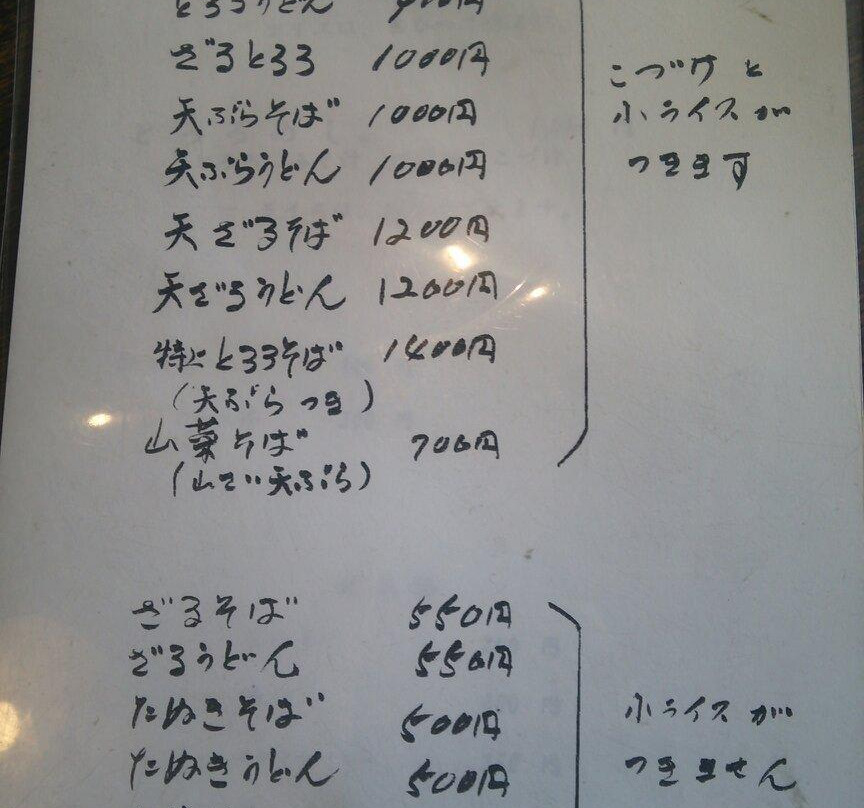 とろろうどん 900円
ざるとろろ 1000円
天ぷらそば 1000円
天ぷらうどん 1000円
天ざるそば 1200円
天ざるうどん 1200円
特上とろろそば 1400円
(天ぷらつき)
山菜そば 700円
(山さい天ぷら)
こづけと
小ライスが
つきます
ざるそば 550円
ざるうどん 550円
たぬきそば 500円
たぬきうどん 500円
小ライスが
つきません